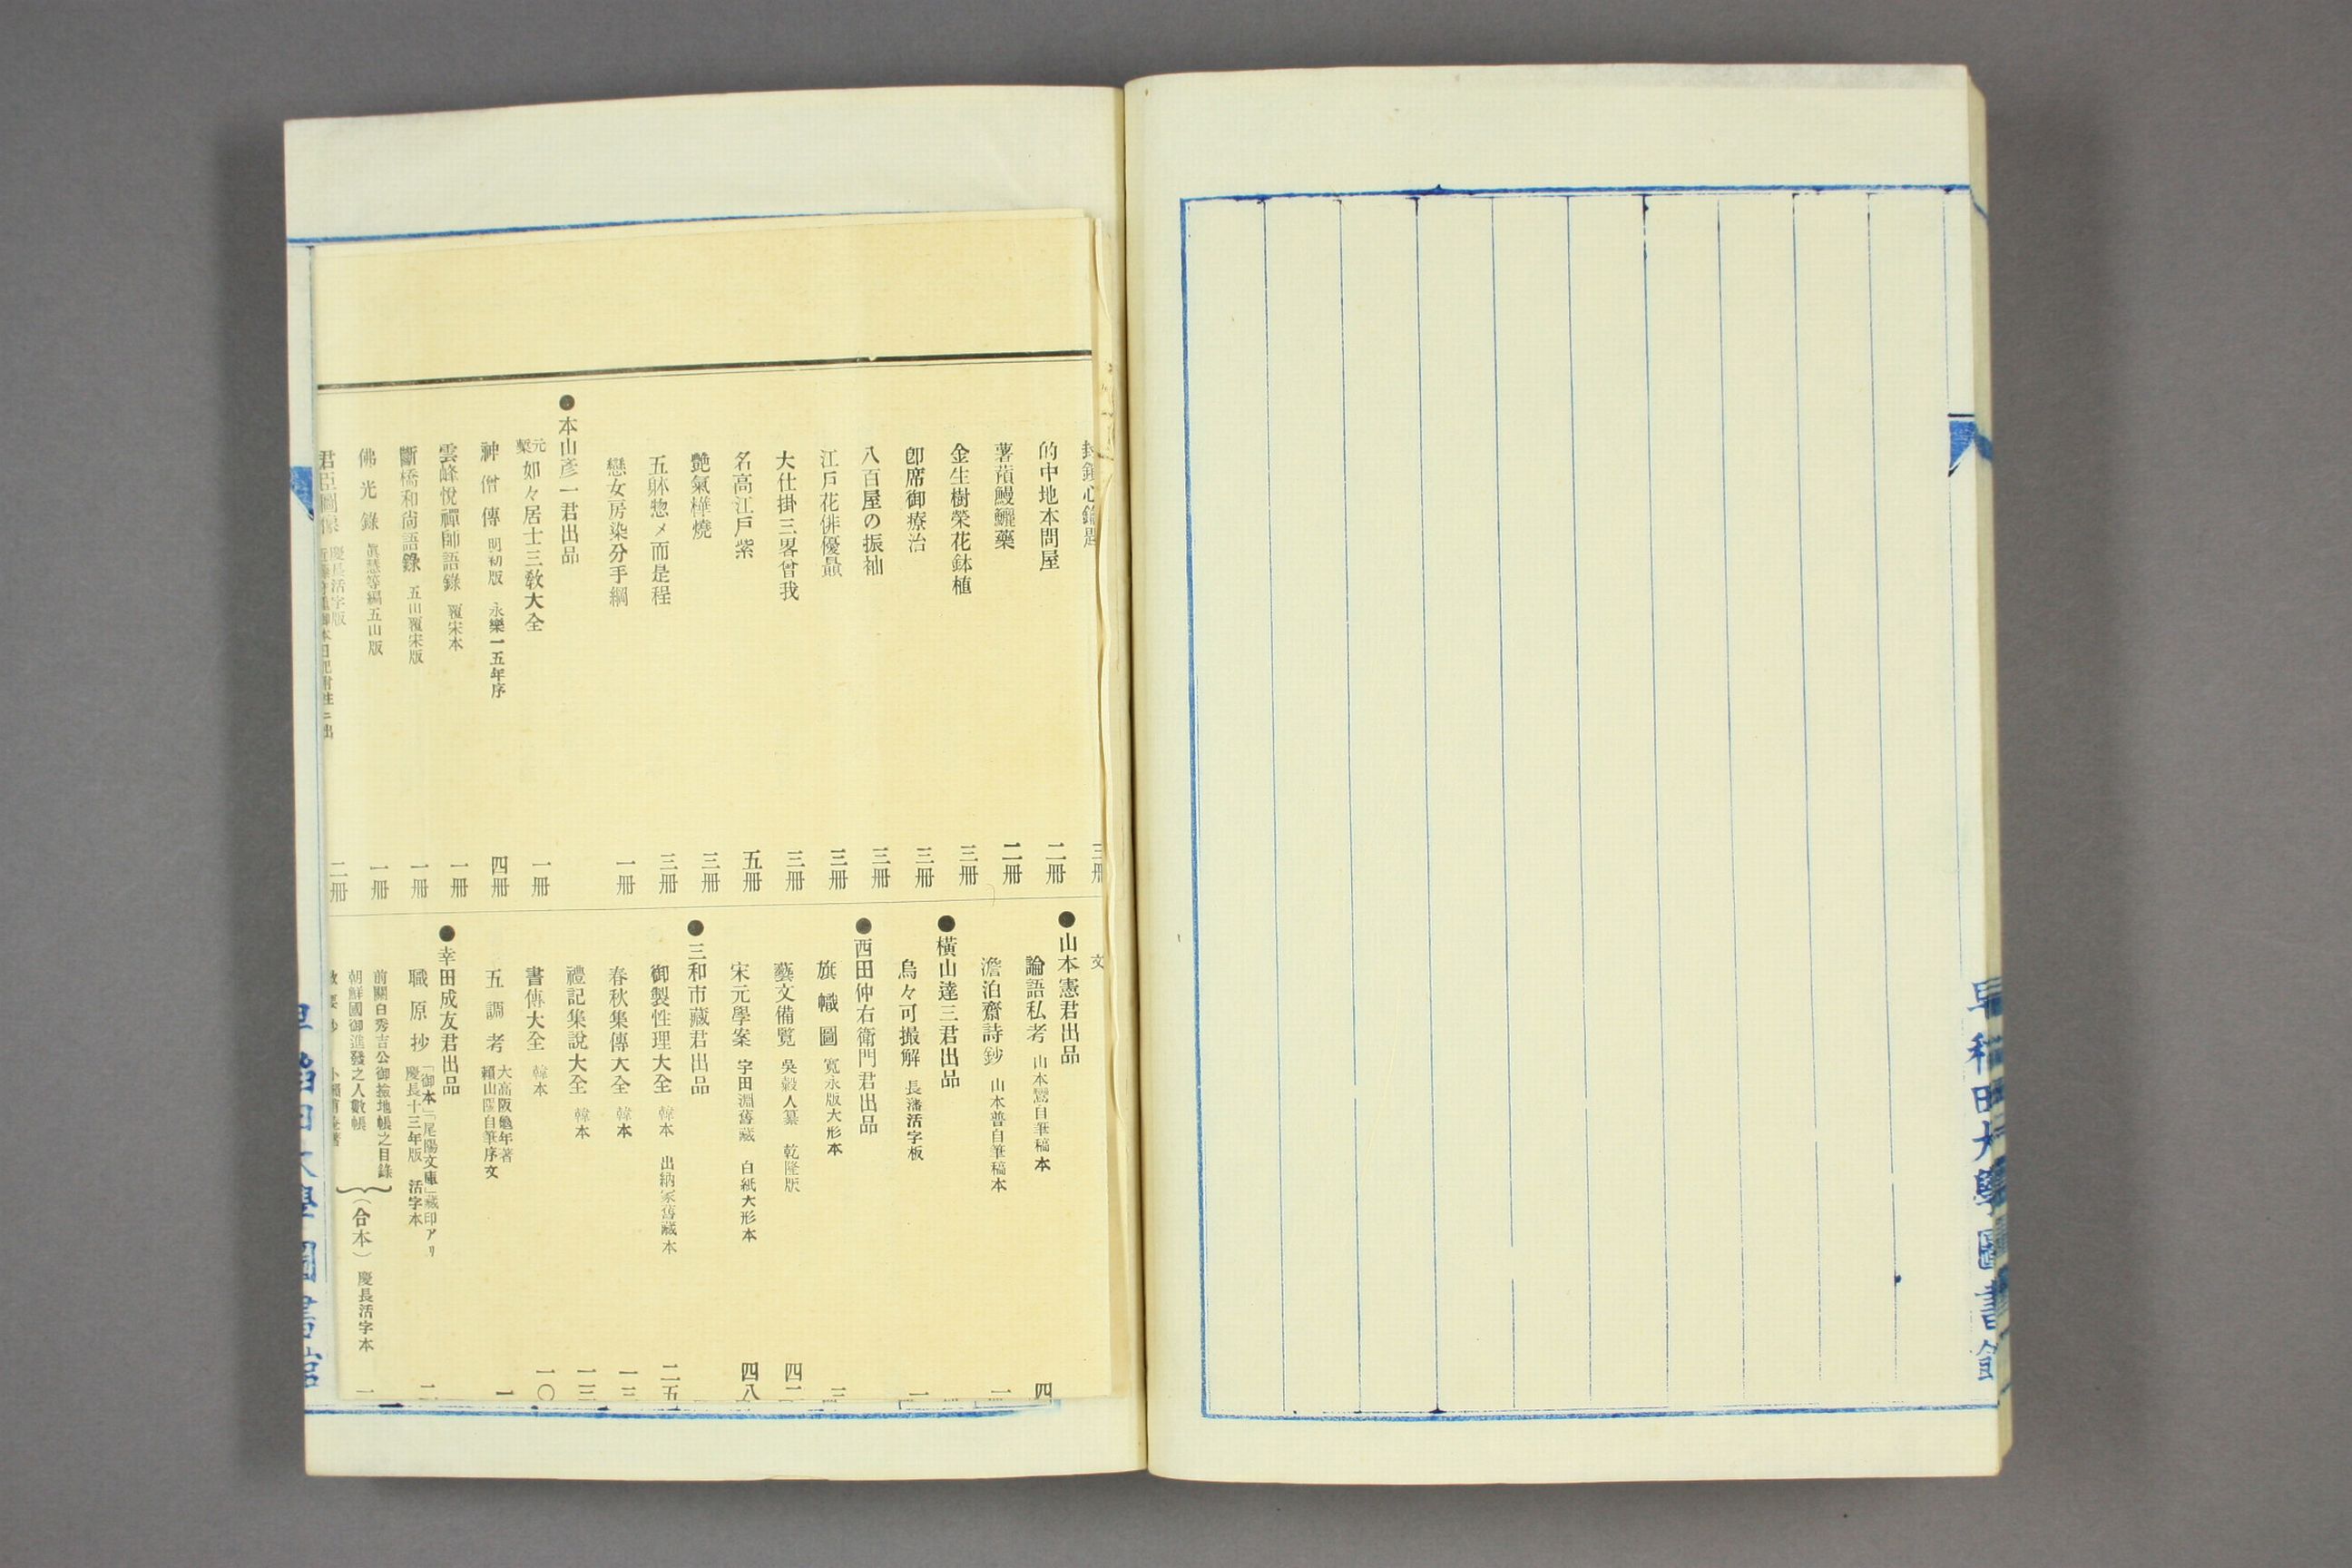 三冊
的中地本問屋 二冊
薯蕷鰻鱺藥 二冊
金生樹榮花鉢植 三冊
卽席御療治 三冊
八百屋の振袖 三冊
江戶花俳優贔 三冊
大仕掛三畧曾我 三冊
名高江戶紫 五冊
艷氣樺燒 三冊
五躰惣〆而是程 三冊
戀女房染分手綱 一冊
●本山彥一君出品
元槧 如々居士三敎大全 一冊
神僧傳 明初版 永樂一五年序 四冊
雲峰悅禪師語錄 覆宋本 一冊
斷橋和尙語錄 五山覆宋版 一冊
佛光錄 眞慧等編五山版 一冊
君臣圖像 慶長活字版 二冊
文
●山本憲君出品
論語私考 山本鸞自筆稿本 四
澹泊齋詩鈔 山本普自筆稿本 一
●橫山達三君出品
烏々可撮解 長藩活字板 一
●西田仲右衛門君出品
旗幟圖 寬永版大形本 三
藝文備覽 吳穀人纂 乾隆版 四二
宋元學案 宇田淵舊藏 白紙大形本 四八
●三和市藏君出品
御製性理大全 韓本 出納家舊藏本 二五
春秋集傳大全 韓本 一三
禮記集說大全 韓本 一三
書傳大全 韓本 一〇
五調考 大高阪龜年著 賴山陽自筆序文 一
●幸田成友君出品
職原抄 「御本」「尾陽文庫」藏印アリ 慶長十三年版 活字本 二
前關白秀吉公御撿地帳之目錄
朝鮮國御進發之人數帳
（合本） 慶長活字本 一
早稻田大學圖書館
早稻田大學圖書館